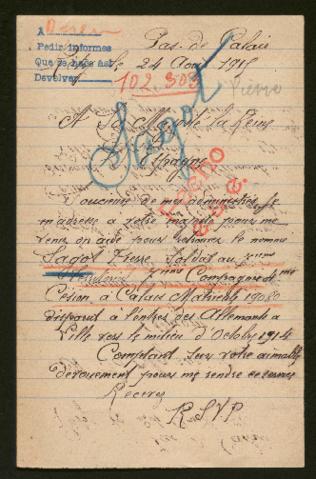 A
Pedir informes
Que se hace así
Devolver
Pas-de-Calais
24 Août 1915
102.303
Pierre
A Sa Majesté la Reine
Sagot
d'Espagne
Soucieux de mes administrés, Je
m'adresse à votre majesté pour me
venir en aide pour retrouver le nommé
Sagot Pierre Soldat au
Compagnie de
à Calais Matricule
disparut à l'entrée des Allemands à
Lille vers le milieu d'Octobre 1914
Comptant sur votre aimable
dévouement pour me rendre ce service
Recevez
R.S.V.P